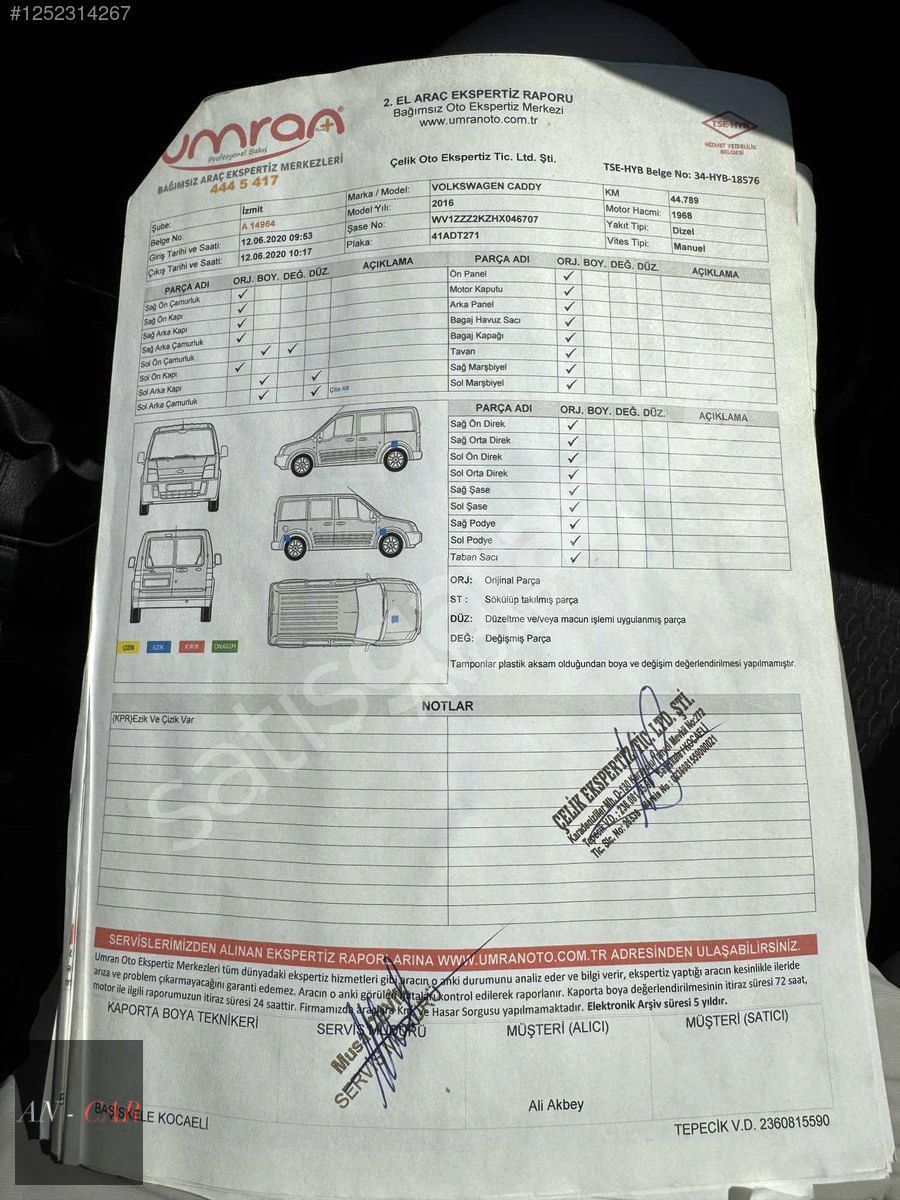 #1252314267
2. EL ARAÇ EKSPERTİZ RAPORU
Bağımsız Oto Ekspertiz Merkezi
www.umranoto.com.tr
umran
Profesyonel Bakış
BAĞIMSIZ ARAÇ EKSPERTİZ MERKEZLERİ
444 5 417
Çelik Oto Ekspertiz Tic. Ltd. Şti.
TSE-HYB
HİZMET YETERLİLİK
BELGESİ
TSE-HYB Belge No: 34-HYB-18576
Şube: İzmit
Belge No: A 14964
Giriş Tarihi ve Saati: 12.06.2020 09:53
Çıkış Tarihi ve Saati: 12.06.2020 10:17
Marka / Model: VOLKSWAGEN CADDY
Model Yılı: 2016
Şase No: WV1ZZZ2KZHX046707
Plaka: 41ADT271
KM 44.789
Motor Hacmi: 1968
Yakıt Tipi: Dizel
Vites Tipi: Manuel
PARÇA ADI ORJ. BOY. DEĞ. DÜZ. AÇIKLAMA
Sağ Ön Çamurluk ✓
Sağ Ön Kapı ✓
Sağ Arka Kapı ✓
Sağ Arka Çamurluk
Sol Ön Çamurluk ✓ ✓
Sol Ön Kapı ✓
Sol Arka Kapı ✓ ✓
Sol Arka Çamurluk ✓ ✓ Çita Alt
PARÇA ADI ORJ. BOY. DEĞ. DÜZ. AÇIKLAMA
Ön Panel ✓
Motor Kaputu ✓
Arka Panel ✓
Bagaj Havuz Sacı ✓
Bagaj Kapağı ✓
Tavan ✓
Sağ Marşbiyel ✓
Sol Marşbiyel ✓
PARÇA ADI ORJ. BOY. DEĞ. DÜZ. AÇIKLAMA
Sağ Ön Direk ✓
Sağ Orta Direk ✓
Sol Ön Direk ✓
Sol Orta Direk ✓
Sağ Şase ✓
Sol Şase ✓
Sağ Podye ✓
Sol Podye ✓
Taban Sacı ✓
ÇİZİK EZİK KIRIK ONARIM
ORJ: Orijinal Parça
ST : Sökülüp takılmış parça
DÜZ: Düzeltme ve/veya macun işlemi uygulanmış parça
DEĞ: Değişmiş Parça
Tamponlar plastik aksam olduğundan boya ve değişim değerlendirilmesi yapılmamıştır.
NOTLAR
(KPR)Ezik Ve Çizik Var
ÇELİK EKSPERTİZ TİC. LTD. ŞTİ.
SERVİSLERİMİZDEN ALINAN EKSPERTİZ RAPORLARINA WWW.UMRANOTO.COM.TR ADRESİNDEN ULAŞABİLİRSİNİZ.
Umran Oto Ekspertiz Merkezleri tüm dünyadaki ekspertiz hizmetleri gibi aracın o anki durumunu analiz eder ve bilgi verir, ekspertiz yaptığı aracın kesinlikle ileride
arıza ve problem çıkarmayacağını garanti edemez. Aracın o anki görülen hataları kontrol edilerek raporlanır. Kaporta boya değerlendirmesinin itiraz süresi 72 saat,
motor ile ilgili raporumuzun itiraz süresi 24 saattir. Firmamızda araçlara ve Hasar Sorgusu yapılmamaktadır. Elektronik Arşiv süresi 5 yıldır.
KAPORTA BOYA TEKNİKERİ
SERVİS MÜDÜRÜ
MÜŞTERİ (ALICI)
MÜŞTERİ (SATICI)
Ali Akbey
BAŞİSKELE KOCAELİ
TEPECİK V.D. 2360815590
AN - CAR